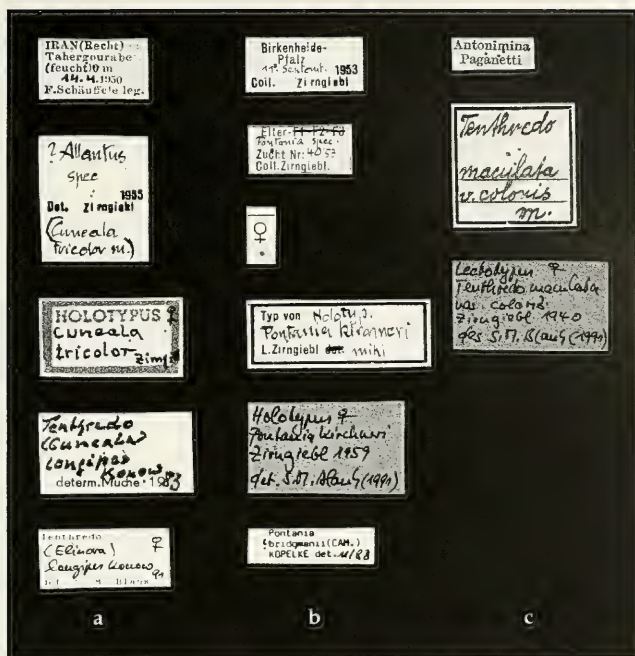 IRAN(Recht)
Tahergourabe
(feucht)0 m
14.4.1950
F.Schäuffele leg.
? Allantus
spec
1955
Det. Zirngiebl
(Cuneala
tricolor m.)
HOLOTYPUS ♀
Cuneala
tricolor Zirngi
Tenthredo
(Cuneala)
longipes
Konow
determ.Muche · 1983
Tenthredo
(Elinora) ♀
longipes Konow
det. S. M. Blank 91
a
Birkenheide-
Pfalz
11. Septemb. 1953
Coll. Zirngiebl
Elter-F1-F2-F3
Pontania spec.
Zucht Nr: 4053
Coll.Zirngiebl.
♀
Typ von Holotyp.
Pontania kirchneri
L.Zirngiebl det. mihi
Holotypus ♀
Pontania kirchneri
Zirngiebl 1959
det. S.M. Blank (1991)
Pontania
bridgmanii(CAM.)
KOPELKE det. 11/88
b
Antonimina
Paganetti
Tenthredo
maculata
v. coloris
m.
Lectotypus ♀
Tenthredo maculata
var. coloris
Zirngiebl 1940
des S.M. Blank (1991)
c